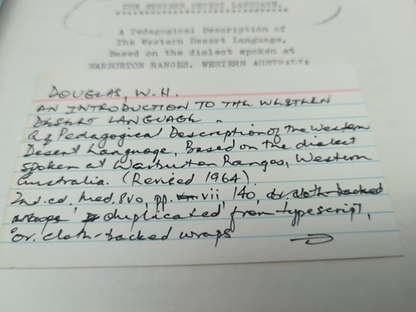 THE WESTERN DESERT LANGUAGE.
A Pedagogical Description of
The Western Desert Language,
Based on the dialect spoken at
WARBURTON RANGES, WESTERN AUSTRALIA
DOUGLAS, W.H.
AN INTRODUCTION TO THE WESTERN
DESERT LANGUAGE.
A Pedagogical Description of the Western
Desert Language, Based on the dialect
spoken at Warburton Ranges, Western
Australia. (Revised 1964).
2nd. ed. Med. 8vo, pp. vii, 140, or cloth-backed
wraps duplicated from typescript,
or. cloth-backed wraps